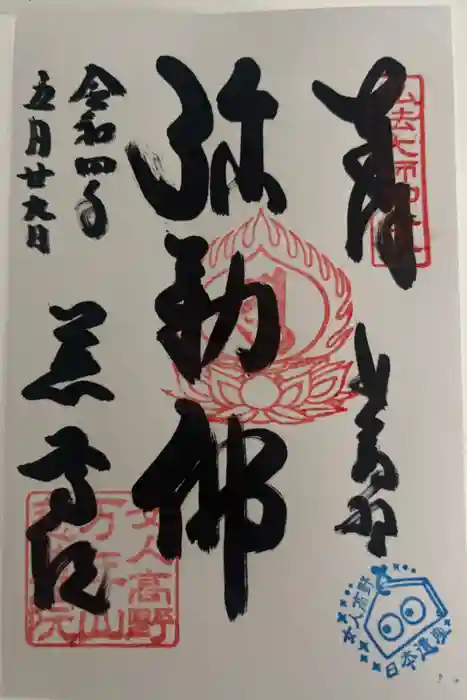 奉拝
弘法大師御母公
弥勒佛
令和四年
五月廿九日
慈尊院
女人高野
万年山
慈尊院
女人高野
日本遺産